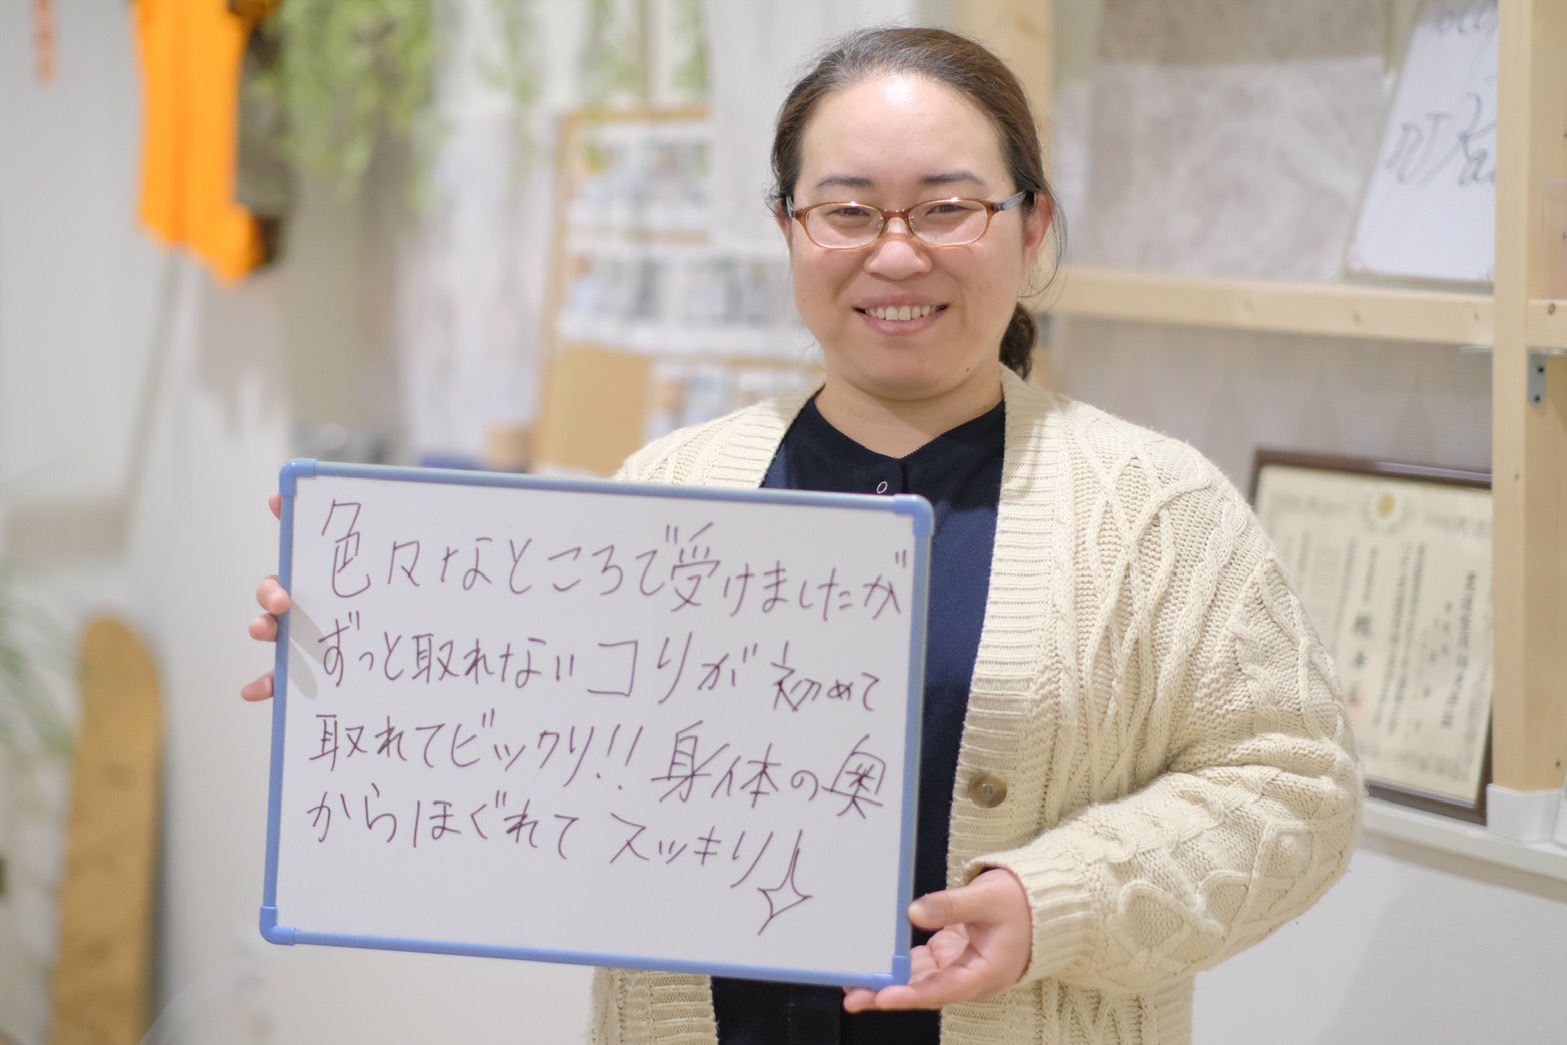 色々なところで受けましたが
ずっと取れないコリが初めて
取れてビックリ!!身体の奥
からほぐれてスッキリ